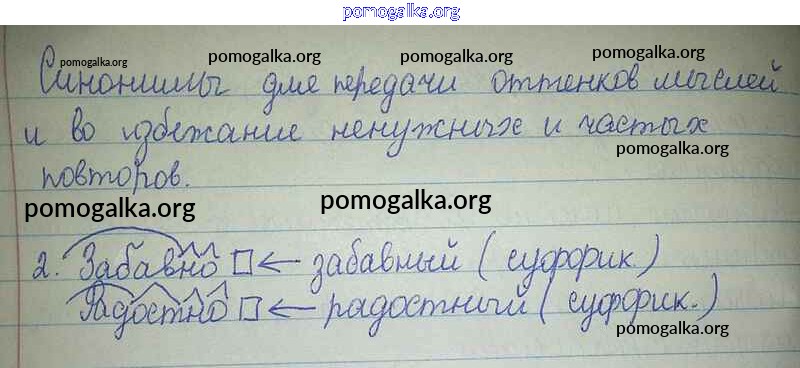 pomogalka.org
pomogalka.org pomogalka.org pomogalka.org pomogalka.org
Синонимы для передачи оттенков мыслей
и во избежание ненужных и частых
pomogalka.org
повторов.
pomogalka.org pomogalka.org
2. Забавно ← забавный (суффик.)
Радостно ← радостный (суффик.)
pomogalka.org